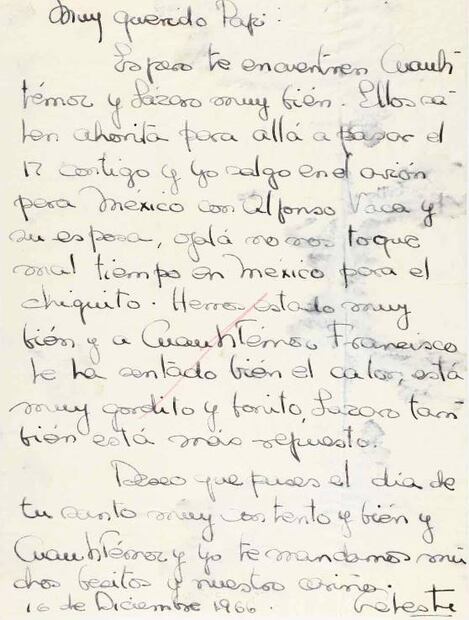 Muy querido Papi:
Espero te encuentren Cuauh
témoc y Lázaro muy bién. Ellos sa
len ahorita para allá a pasar el
17 contigo y yo salgo en el avión
para México con Alfonso Vaca y
su esposa, ojalá no nos toque
mal tiempo en México para el
chiquito. Hemos estado muy
bién y a Cuauhtémoc Francisco
le ha sentado bién el calor, está
muy gordito y bonito, Lázaro tam
bién está más repuesto.
Deseo que pases el día de
tu santo muy contento y bién y
Cuauhtémoc y yo te mandamos mu
chos besitos y nuestro cariño.
16 de Diciembre 1966. Celeste